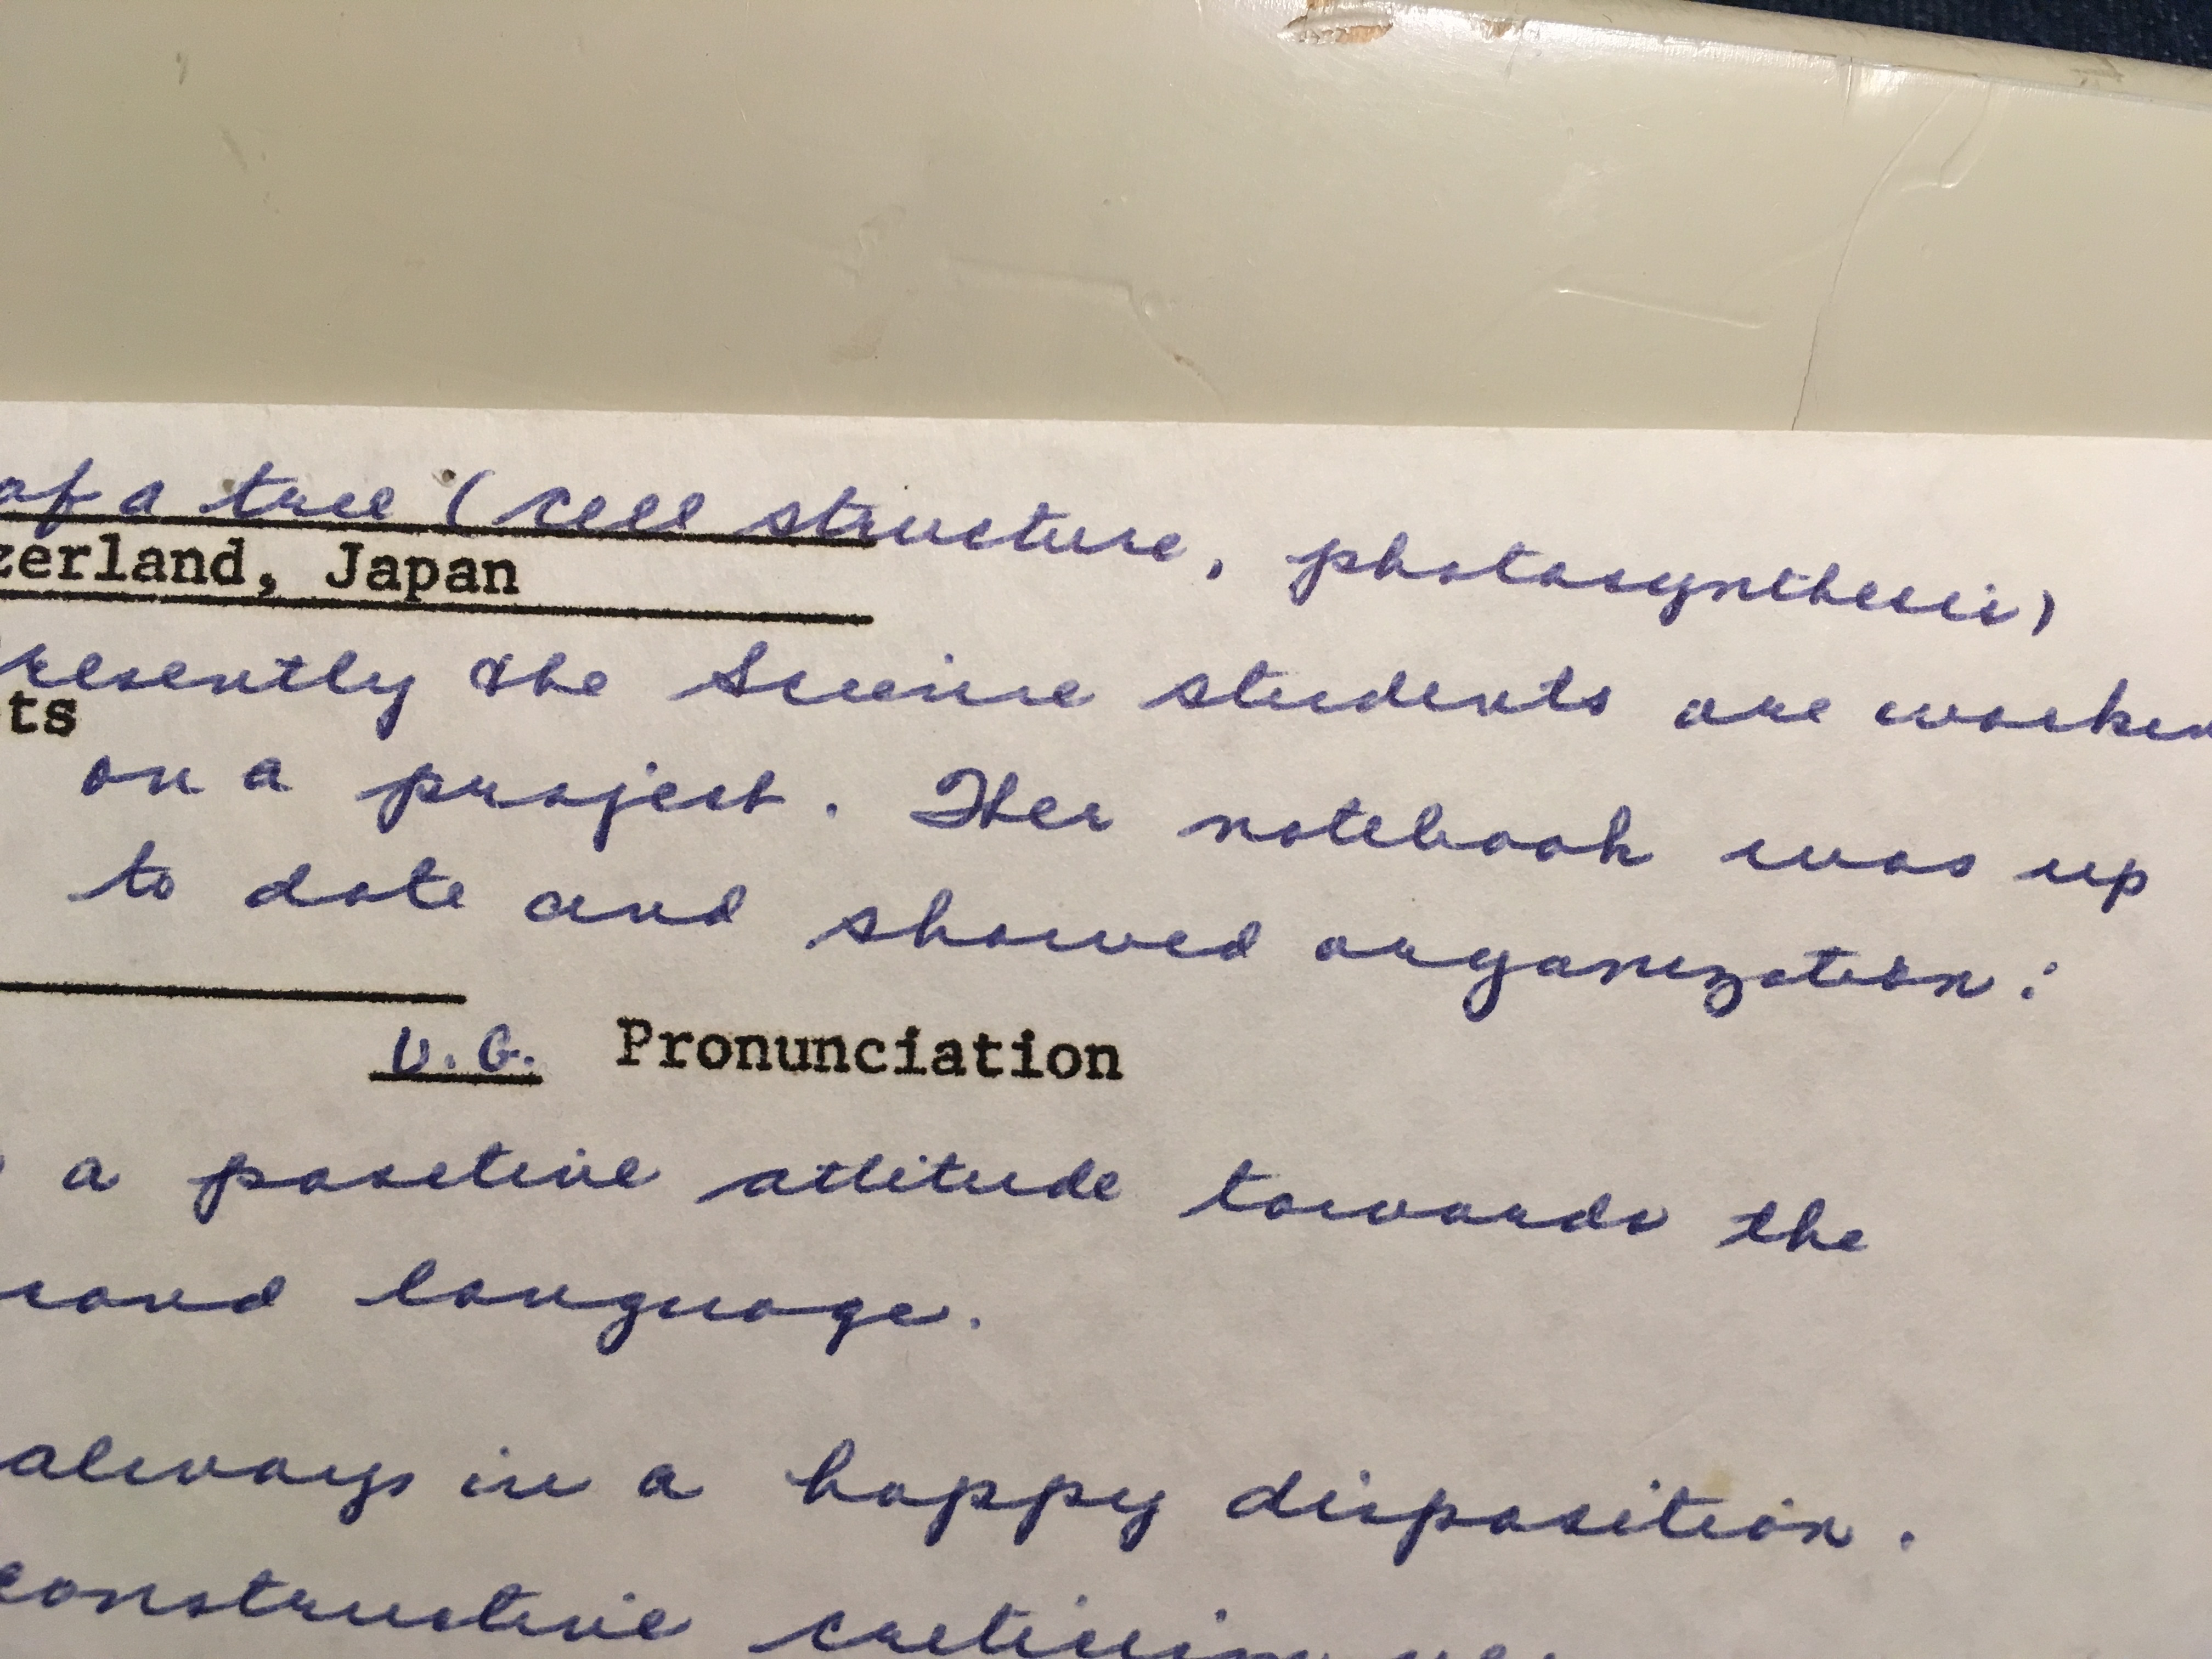 of a tree (cell structure, photosynthesis)
zerland, Japan
resently the Science students are workin
ts
on a project. Ther notebook was up
to date and showed organization:
V.G. Pronunciation
a positive attitude towards the
cond language.
always in a happy disposition.
constructive